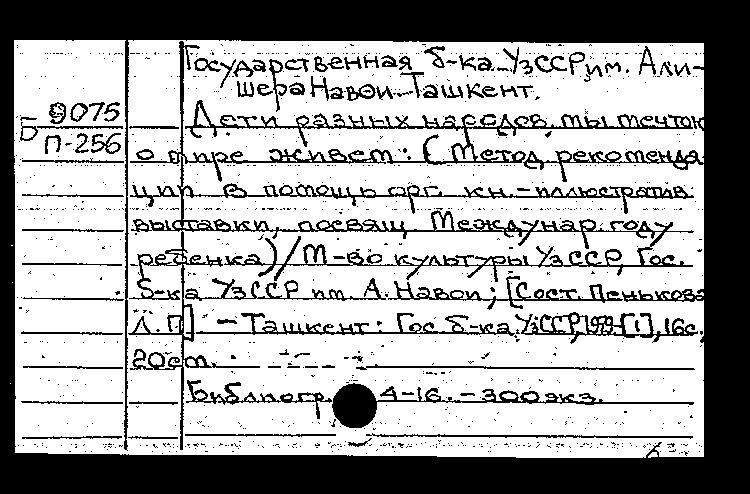 Государственная б-ка УзССР им. Али-
шера Навои. Ташкент.
Б 9075
П-256
Дети разных народов, мы мечтою
о мире живем: (Метод. рекоменда-
ции в помощь орг. кн.-иллюстратив.
выставки, посвящ. Междунар. году
ребенка) / М-во культуры УзССР, Гос.
б-ка УзССР им. А. Навои; [Сост. Пенькова
Л.П] - Ташкент: Гос. б-ка УзССР, - [1], 16с.,
20см.
Библиогр. 4-16. - 300экз.